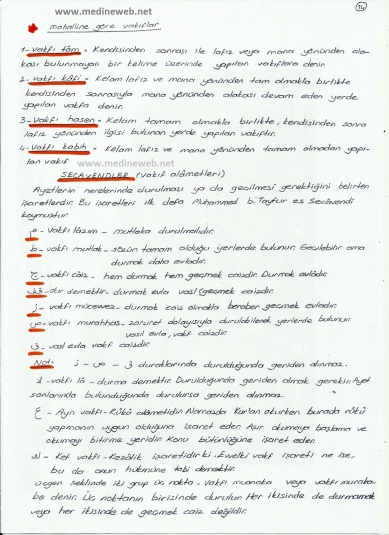 www.medineweb.net
14
mahalline göre vakıflar
1- Vakfı tâm = Kendisinden sonrası ile lafız veya mana yönünden ala-
kası bulunmayan bir kelime üzerinde yapılan vakıflara denir.
2- Vakfı kâfi = Kelam lafız ve mana yönünden tam olmakla birlikte
kendisinden sonrasıyla mana yönünden alakası devam eden yerde
yapılan vakfa denir.
3- Vakfı hasen = Kelam tamam olmakla birlikte, kendisinden sonra
lafız yönünden ilgisi bulunan yerde yapılan vakıftır.
4- Vakfı kabih = Kelam lafız ve mana yönünden tamam olmadan yapı-
lan vakıf
www.medineweb.net
SECAVENDLER (vakıf alâmetleri)
Ayetlerin nerelerinde durulması ya da geçilmesi gerektiğini belirten
işaretlerdir. Bu işaretleri ilk defa Muhammed b. Tayfur es Secâvendi
koymuştur.
م - Vakfı lâzım - mutlaka durulmalıdır.
ط - vakfı mutlak - sözün tamam olduğu yerlerde bulunur. Geçilebilir ama
durmak daha evladır.
ج - vakfı câiz - hem durmak hem geçmek caizdir. Durmak evlâdır.
قف - dur demektir - durmak evla vasl (geçmek caizdir.
ز - vakfı mücevvez - durmak caiz olmakla beraber geçmek evladır.
ص - vakfı murahhas - zaruret dolayısıyla durulabilecek yerlerde bulunur.
vasıl evla, vakf caizdir.
ق - vasl evla vakıf caizdir.
Not: ز - ص - ق duraklarında durulduğunda geriden alınmaz.
لا - vakfı lâ - durma demektir. Durulduğunda geriden almak gerekir. Ayet
sonlarında bulunduğunda durulursa geriden alınmaz.
ع - Ayn vakfı - Rükû alâmetidir. Namazda Kur'an okurken burada rükû
yapmanın uygun olduğuna işaret eder. Aşır okumaya başlama ve
okumayı bitirme yeridir. Konu bütünlüğüne işaret eder.
ك - Kef vakfı - Kezâlik işaretidir ki. Evvelki vakf işareti ne ise,
bu da onun hükmüne tabi demektir.
üçgen şeklinde iki grup üç nokta - Vakfı muanaka veya vakfı muraka-
be denir. Üç noktanın birisinde durulur. Her ikisinde de durmamak
veya her ikisinde de geçmek caiz değildir.